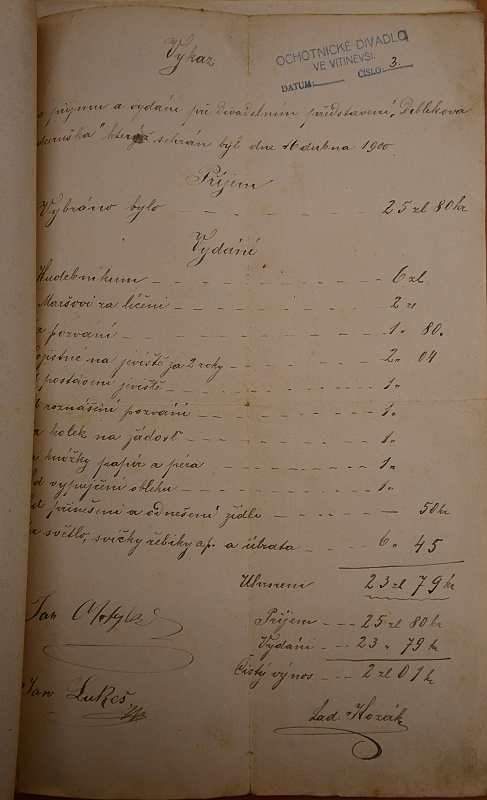 Výkaz
OCHOTNICKÉ DIVADLO
VE VITINĚVSI.
DATUM: ČÍSLO: 3.
o příjmu a vydání při divadelním představení „Deblíkova
který sehrán byl dne 16 dubna 1900.
Příjem
Vybráno bylo - - - - 25 zl 80 kr
Vydání
Hudebníkum - - - - 6 zl
Maršovi za líčení - - - - 2 zl
a pozvání - - - - 1 „ 80 „
ojistné na jeviště za 2 roky - - - - 2 „ 04
postavení jeviště - - - - 1 „
d roznášení pozvání - - - - 1 „
a kolek na žádosť - - - - 1 „
a knížky papír a péra - - - - 1 „
d vypujčení obleku - - - - 1 „
d přinešení a odnešení židlí - - - - — 50 kr
a světlo, svíčky řebíky ap. a útrata - - - - 6 „ 45
Úhrnem 23 zl 79 kr
Příjem - - - 25 zl 80 kr
Vydání - - - 23 „ 79 kr
Čistý výnos - - - 2 zl 01 k
Jan
Jan Lukeš
Lad. Kozák